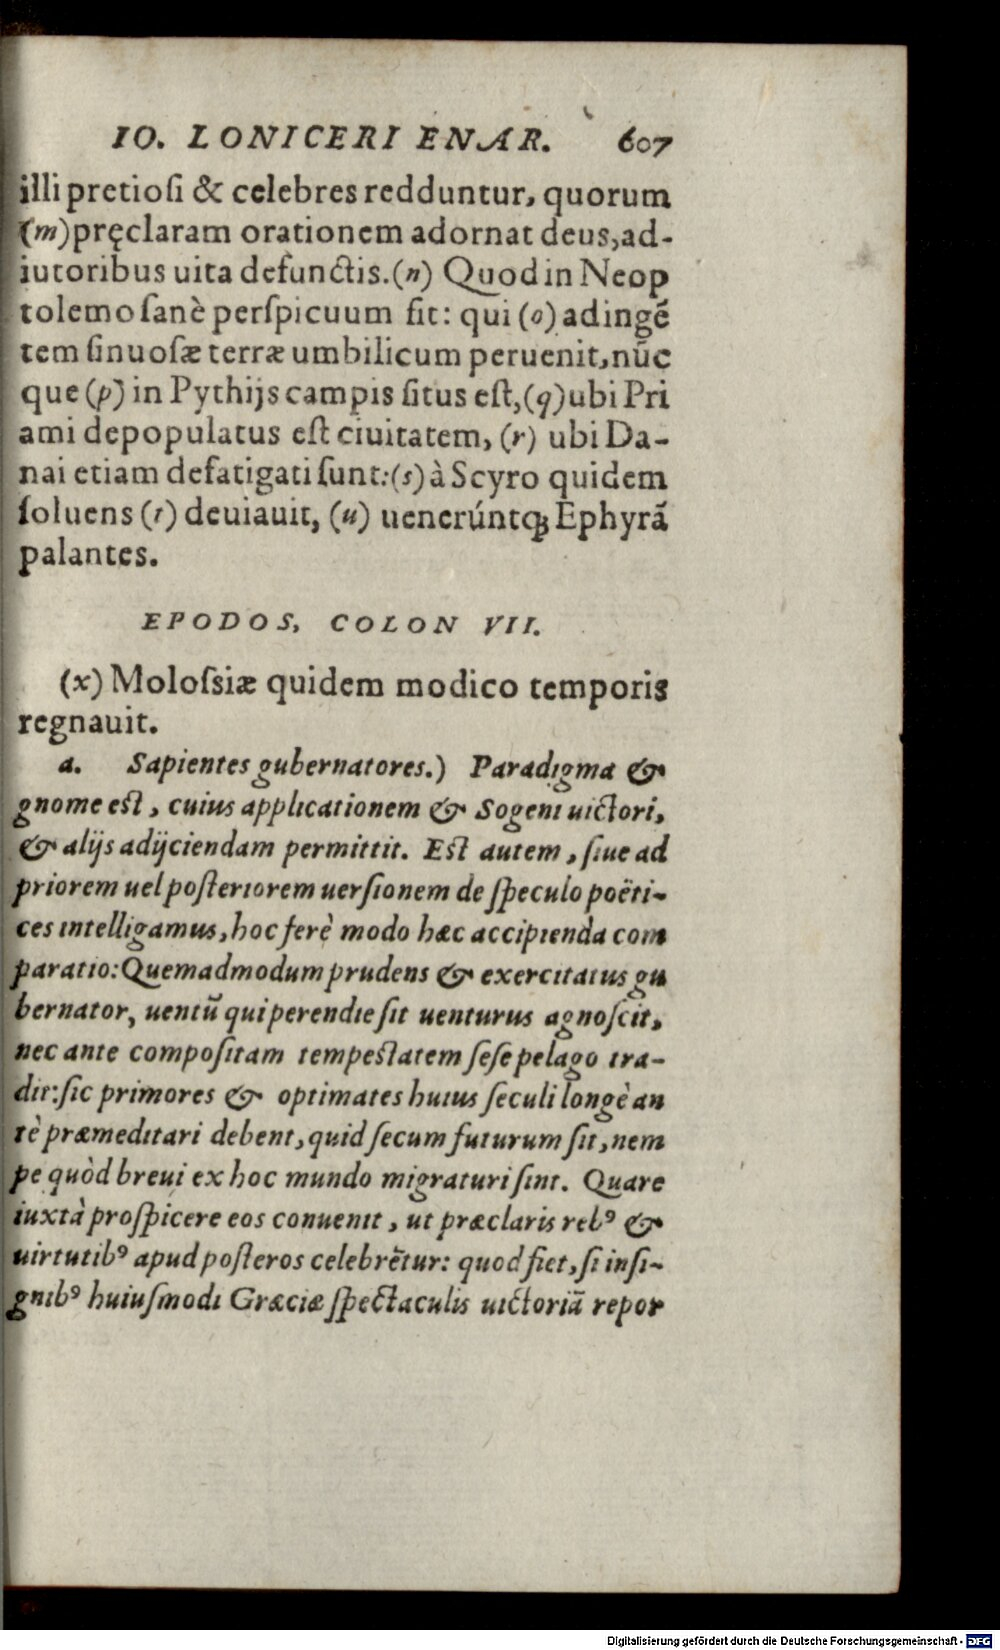 IO. LONICERI ENAR. 607
illi pretiosi & celebres redduntur, quorum
(m)pręclaram orationem adornat deus,ad-
iutoribus uita defunctis.(n) Quod in Neop
tolemo sanè perspicuum fit: qui (o) ad ingẽ
tem sinuosæ terræ umbilicum peruenit, nũc
que (p) in Pythijs campis situs est,(q)ubi Pri
ami depopulatus est ciuitatem, (r) ubi Da-
nai etiam defatigati sunt:(s) à Scyro quidem
soluens (t) deuiauit, (u) uenerúntqꝫ Ephyrã
palantes.
EPODOS, COLON VII.
(x) Molossiæ quidem modico temporis
regnauit.
a. Sapientes gubernatores.) Paradigma &
gnome est, cuius applicationem & Sogeni uictori,
& alijs adijciendam permittit. Est autem, siue ad
priorem uel posteriorem uersionem de speculo poëti-
ces intelligamus, hoc ferè modo hæc accipienda com
paratio: Quemadmodum prudens & exercitatus gu
bernator, uentũ qui perendie sit uenturus agnoscit,
nec ante compositam tempestatem sese pelago tra-
dit: sic primores & optimates huius seculi longè an
tè præmeditari debent, quid secum futurum sit, nem
pe quòd breui ex hoc mundo migraturi sint. Quare
iuxtà prospicere eos conuenit, ut præclaris rebꝰ &
uirtutibꝰ apud posteros celebrẽtur: quod fiet, si insi-
gnibꝰ huiusmodi Græciæ spectaculis uictoriã repor
Digitalisierung gefördert durch die Deutsche Forschungsgemeinschaft - DFG